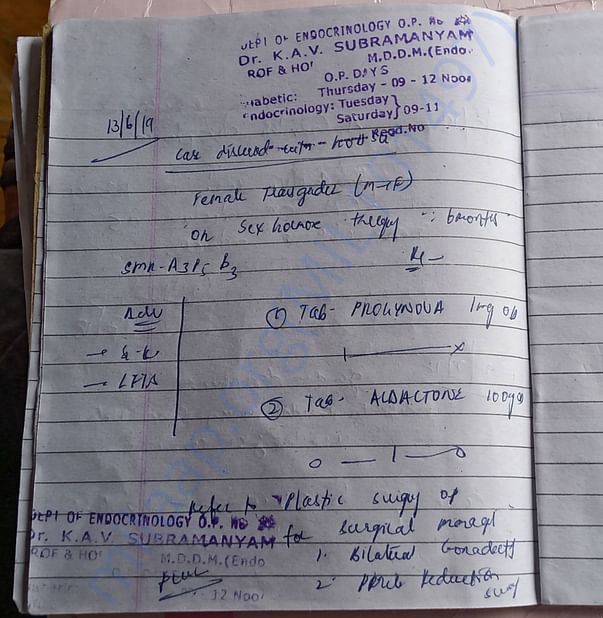 DEPT OF ENDOCRINOLOGY O.P. No
Dr. K.A.V. SUBRAMANYAM
M.D.D.M.(Endo.
ROF & HO
O.P. DAYS
iabetic: Thursday - 09 - 12 Noo
ndocrinology: Tuesday }
Saturday } 09-11
Regd.No
13/6/19
Case discussed with
Female Transgender (M→F)
on Sex hormone therapy : 6months
SMR- A3 P5 B3
Adv
→ S-K
→ LFTs
Rx
① Tab- PROGYNOVA 1mg OD
② Tab- ALDACTONE 100mg OD
0 — 1 — 0
Refer to Plastic surgery OP
for surgical
1. Bilateral Gonadect
2. Reduction Surg
DEPT OF ENDOCRINOLOGY O.P. No
Dr. K.A.V. SUBRAMANYAM
ROF & HO
M.D.D.M.(Endo
12 Noo